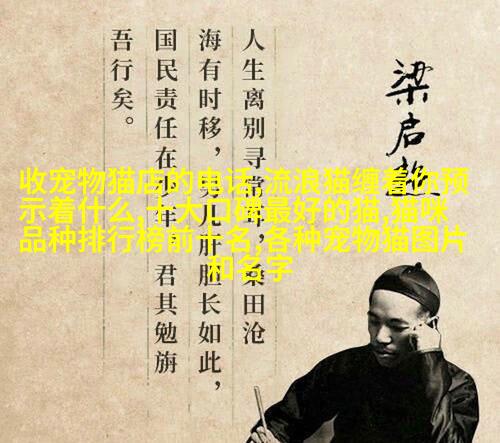 梁启超
人生离别寻常事，桑田沧
海有时移，男儿肝胆长如此，
国民责任在少年，君其勉旃
吾行矣。
收宠物猫店的电话,流浪猫缠着你预
示着什么,十大口碑最好的猫,猫咪
品种排行榜前十名,各种宠物猫图片
和名字